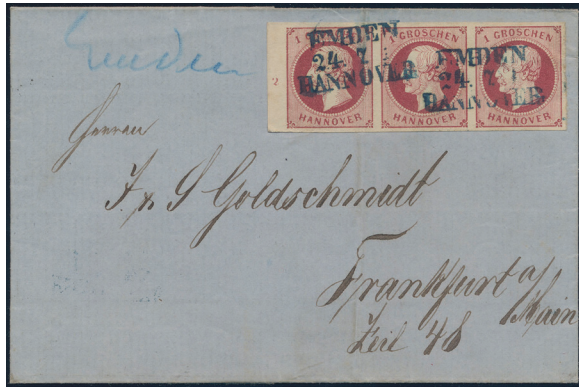 Emden
1 GROSCHEN 1
HANNOVER
1 GROSCHEN 1
HANNOVER
1 GROSCHEN 1
HANNOVER
2
EMDEN
24. 7.
HANNOVER
EMDEN
24. 7.
HANNOVER
Herren
J. & S Goldschmidt
Frankfurt a/
Main
Zeil 48